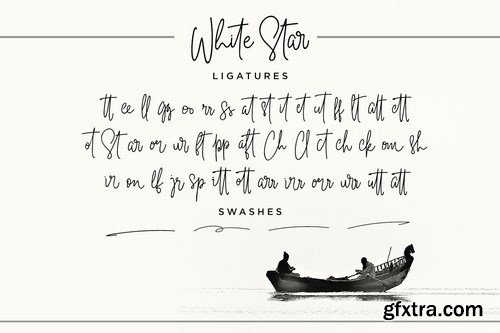 White Star
LIGATURES
tt ee ll gg oo rr ss at st it et ut ff lt att ett
ot St ar or ur ft pp aft Ch Cl ct ch ck om sh
ir on lf jr sp itt ott arr irr orr urr utt att
SWASHES
gfxtra.com